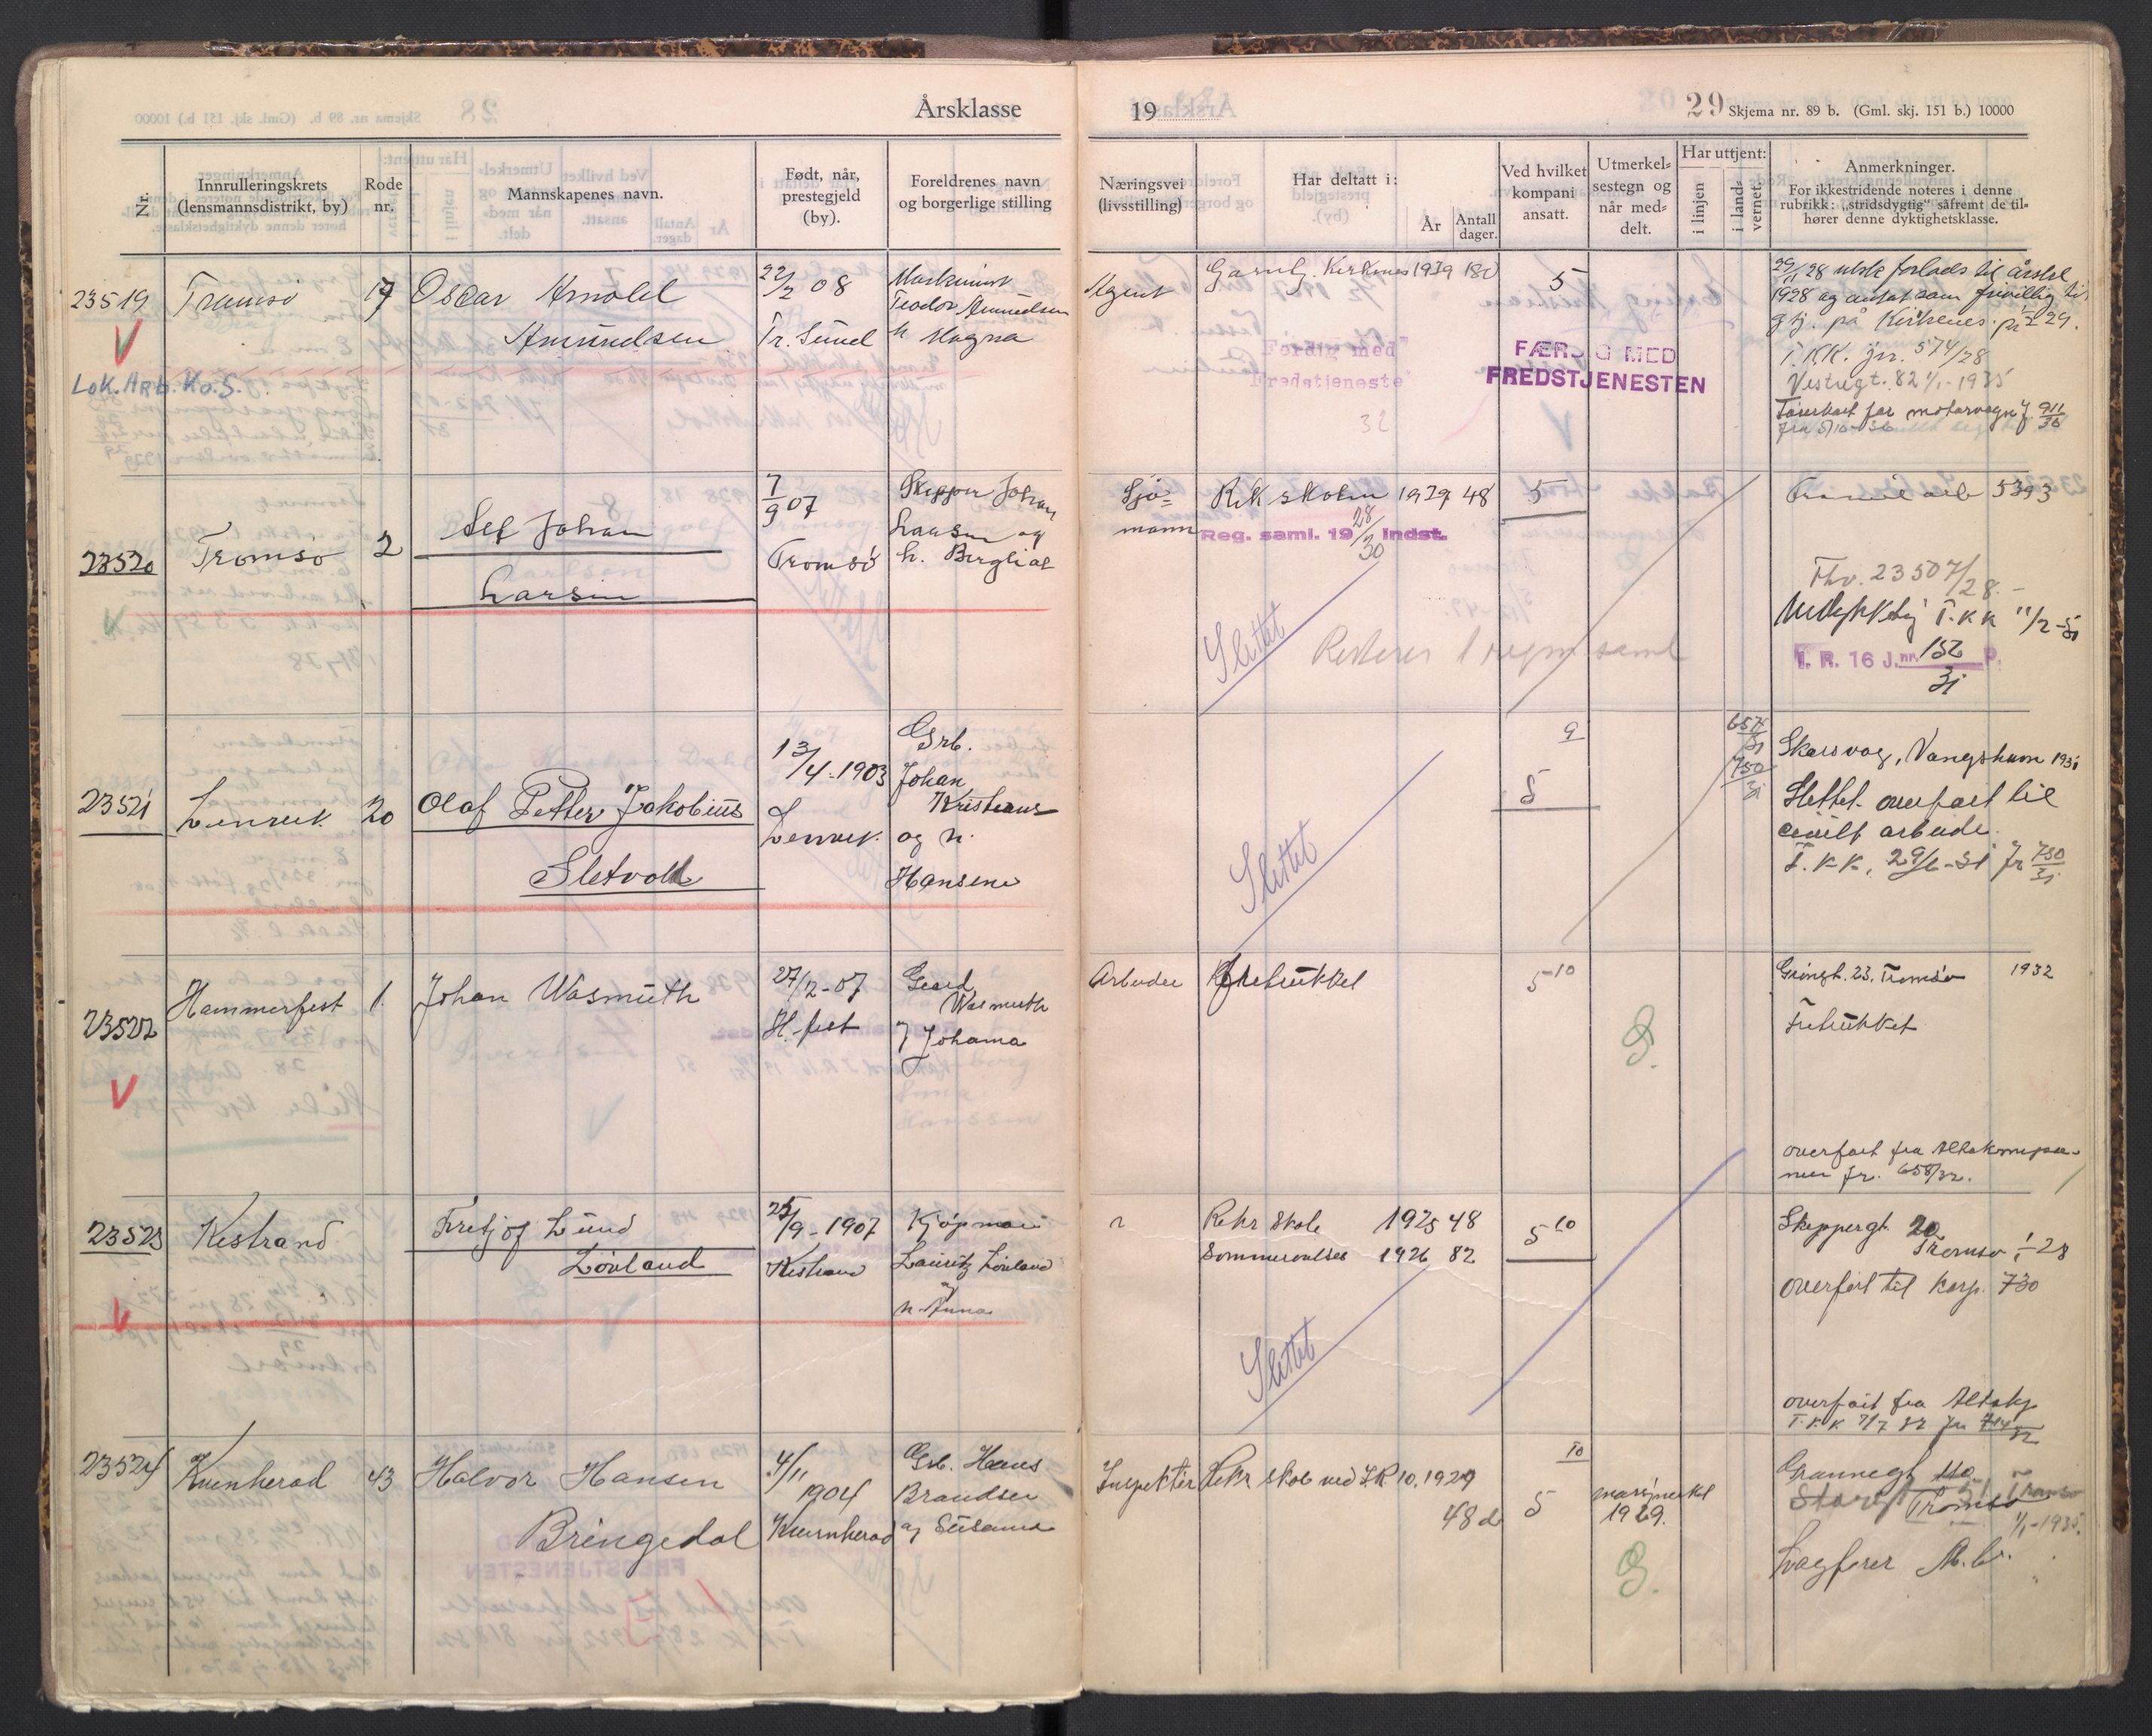 Årsklasse
19
29 Skjema nr. 89 b. (Gml. skj. 151 b.) 10000
Nr.
Innrulleringskrets
(lensmannsdistrikt, by)
Rode
nr.
Mannskapenes navn.
Født, når,
prestegjeld
(by).
Foreldrenes navn
og borgerlige stilling
Næringsvei
(livsstilling)
Har deltatt i:
År
Antall
dager.
Ved hvilket
kompani
ansatt.
Utmerkel=
sestegn og
når med=
delt.
Har uttjent:
i linjen
i land=
vernet.
Anmerkninger.
For ikkestridende noteres i denne
rubrikk: „stridsdygtig" såfremt de til=
hører denne dyktighetsklasse.
23519
Tromsö
17
Oscar Arnold
Amundsen
22/2 08
Tr. Sund
Maskinist
Teodor Amundsen
h Magna
Lok. Arb. Ko. S.
Agent
Garnb. Kirkenes 1939 180
Ferdig med
Fredstjeneste
32
5
FÆRDIG MED
FREDSTJENESTEN
1928 og antat som frivillig til
på Kirkenes
T.KK. jnr. 574/28
Vestregt. 82 1/1-1935
Førerkort for motorvogn J. 911/36
fra 5/10-36
23520
Tromsö
2
Leif Johan
Larsen
7/9 07
Tromsö
Skipper Johan
Larsen og
h. Bergliot
Sjö=
mann
Rek skolen 1929 48
Reg. saml. 19 28/30 indst.
Slettet
Resterer 1 regm saml
5
5393
Fhv. 23507/28.-
T.K.K 11/2-31
I. R. 16 J. nr. 152 P.
31
23521
Lenvik
20
Olaf Petter Jakobius
Sletvold
13/4-1903
Lenvik.
Grb.
Johan
Kristians
og h.
Hansene
Slettet
9
5
657/31
750/31
Skarsvag, Vangshavn 1931
Slettet. overfört til
civilt arbeide.
T.K.K. 29/6-31 Jr 750/31
23522
Hammerfest
1.
Johan Wasmuth
27/2-07
H. fest
Gerd
Wasmuth
J Johama
Arbeider
5 10
G.
Gröngt. 23. Tromsö 1932
Fritrukket
overfört fra Altakompa-
niet Jr. 658/32.
23523
Kistrand
Fritjof Lund
Lövland
25/9-1907
Kistrand
Kjöpman
Lauritz Lövland
og
h. Anna
"
Rekr Skole 1925 48
Sommerövelser 1926 82
Slettet
5 10
Skippergt. 20
Tromsö 1/1-28
overfört til korp. 730
overfört fra Altakp
T.K.K 7/7 32 Jr 714/32
23524
Kvinherad
43
Halvor Hansen
Bringedal
4/11
1904
Kvinherad
Grb. Hans
Brandser
og Susanna
Inspektör
Rekr skole ved I.R 10. 1929
48 d
10
5
marsjmerket
1929.
G.
Grannegt 110
Storgt
Tromsö
1/1-1935.
Lagförer M.G.